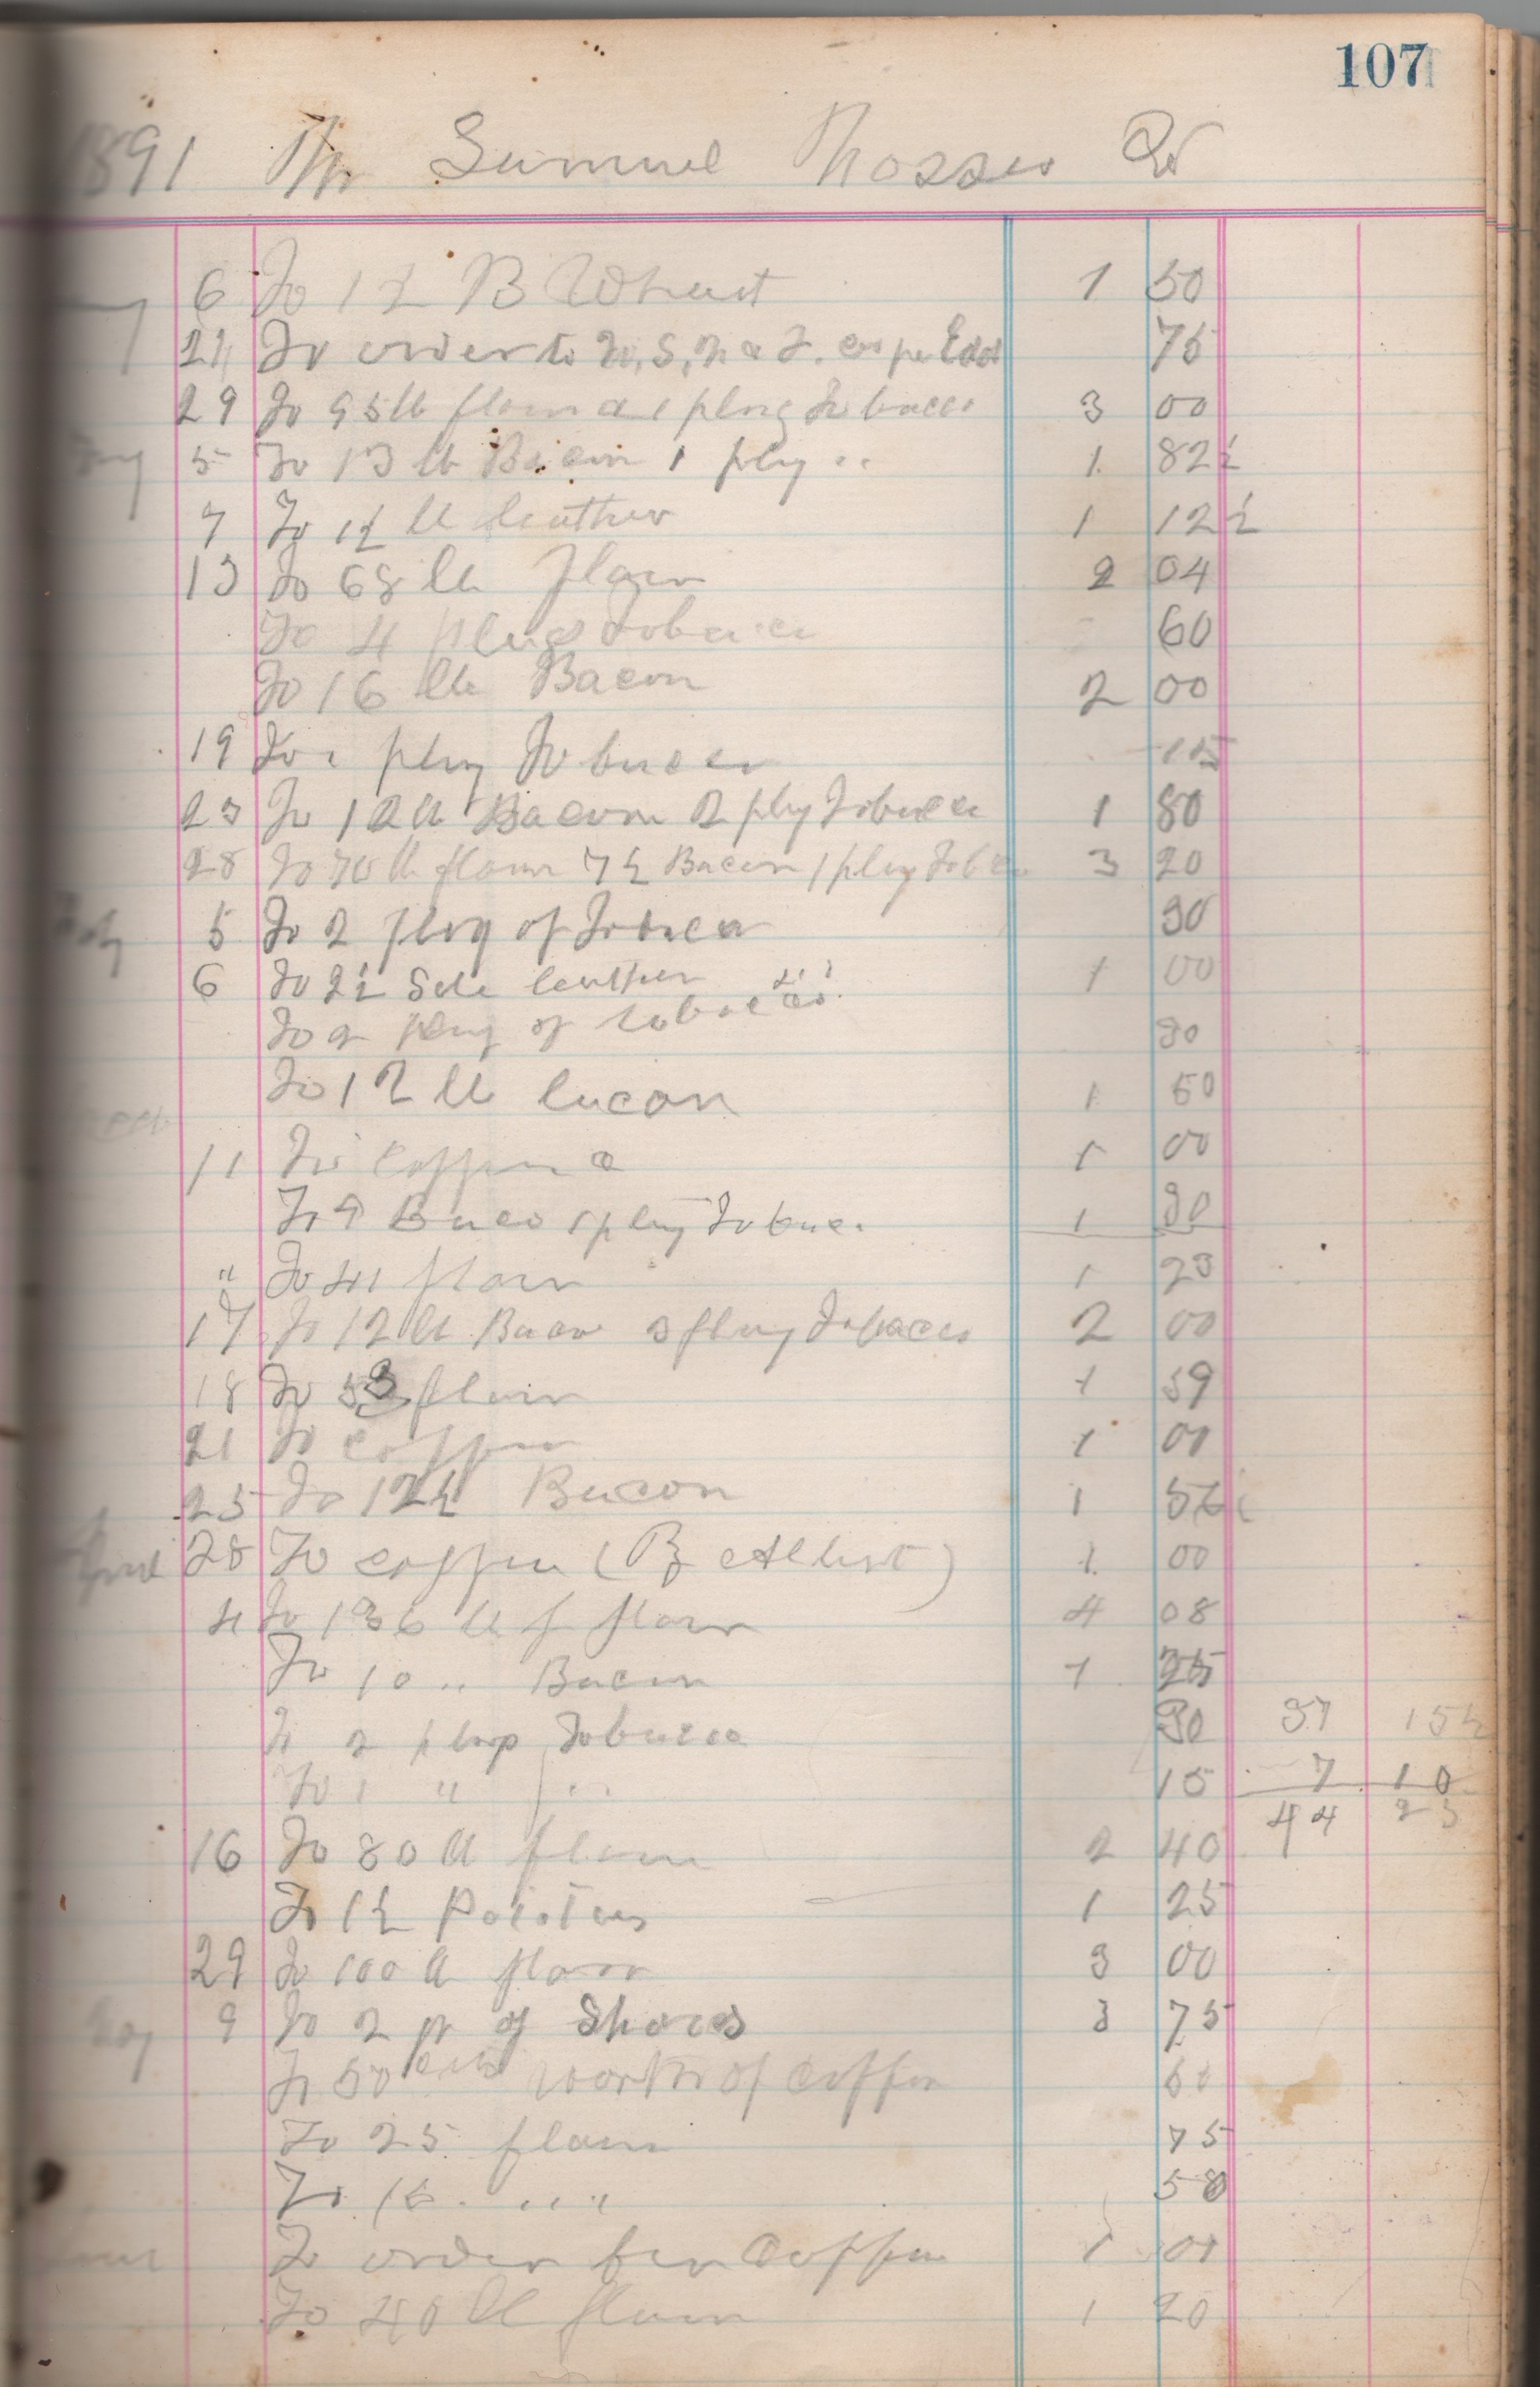 107
1891 Mr Samuel Prosser Dr
6 To 1½ B Wheat 1 50
24 To order to 75
29 To 95 lb flour & 1 plug Tobacco 3 00
5 To 13 lb Bacon 1 plug " 1 82½
7 To 1½ lb leather 1 12½
13 To 68 lb flour 2 04
To 4 plugs Tobacco 60
To 16 lb Bacon 2 00
19 To 1 plug Tobacco 15
23 To 12 lb Bacon 2 plug Tobacco 1 80
28 To 70 lb flour 7½ Bacon 1 plug Tobac 3 20
5 To 2 plug of Tobacco 30
6 To 2½ Sole leather 1 00
To 2 plug of tobacco 30
To 12 lb bacon 1 50
11 To Coffee 1 00
To 9 Baco 1 plug Tobac 1 30
" To 41 flour 1 23
17 To 12 lb Bacon 3 plug Tobacco 2 00
18 To 53 flour 1 59
21 To coffee 1 00
25 To 12½ Bacon 1 56¼
April 28 To coffee ( ) 1 00
4 To 136 lb f flour 4 08
To 10 " Bacon 1 25
To 2 plugs Tobacco 30 37 15½
To 1 " " 15 7 10
44 25
16 To 80 lb flour 2 40
To 1½ Potatoes 1 25
29 To 100 lb flour 3 00
9 To 2 pr of Shoes 3 75
To 50 cts worth of Coffee 50
To 25 flour 75
To 16 " " 50
To order for Coffee 1 00
To 40 lb flour 1 20